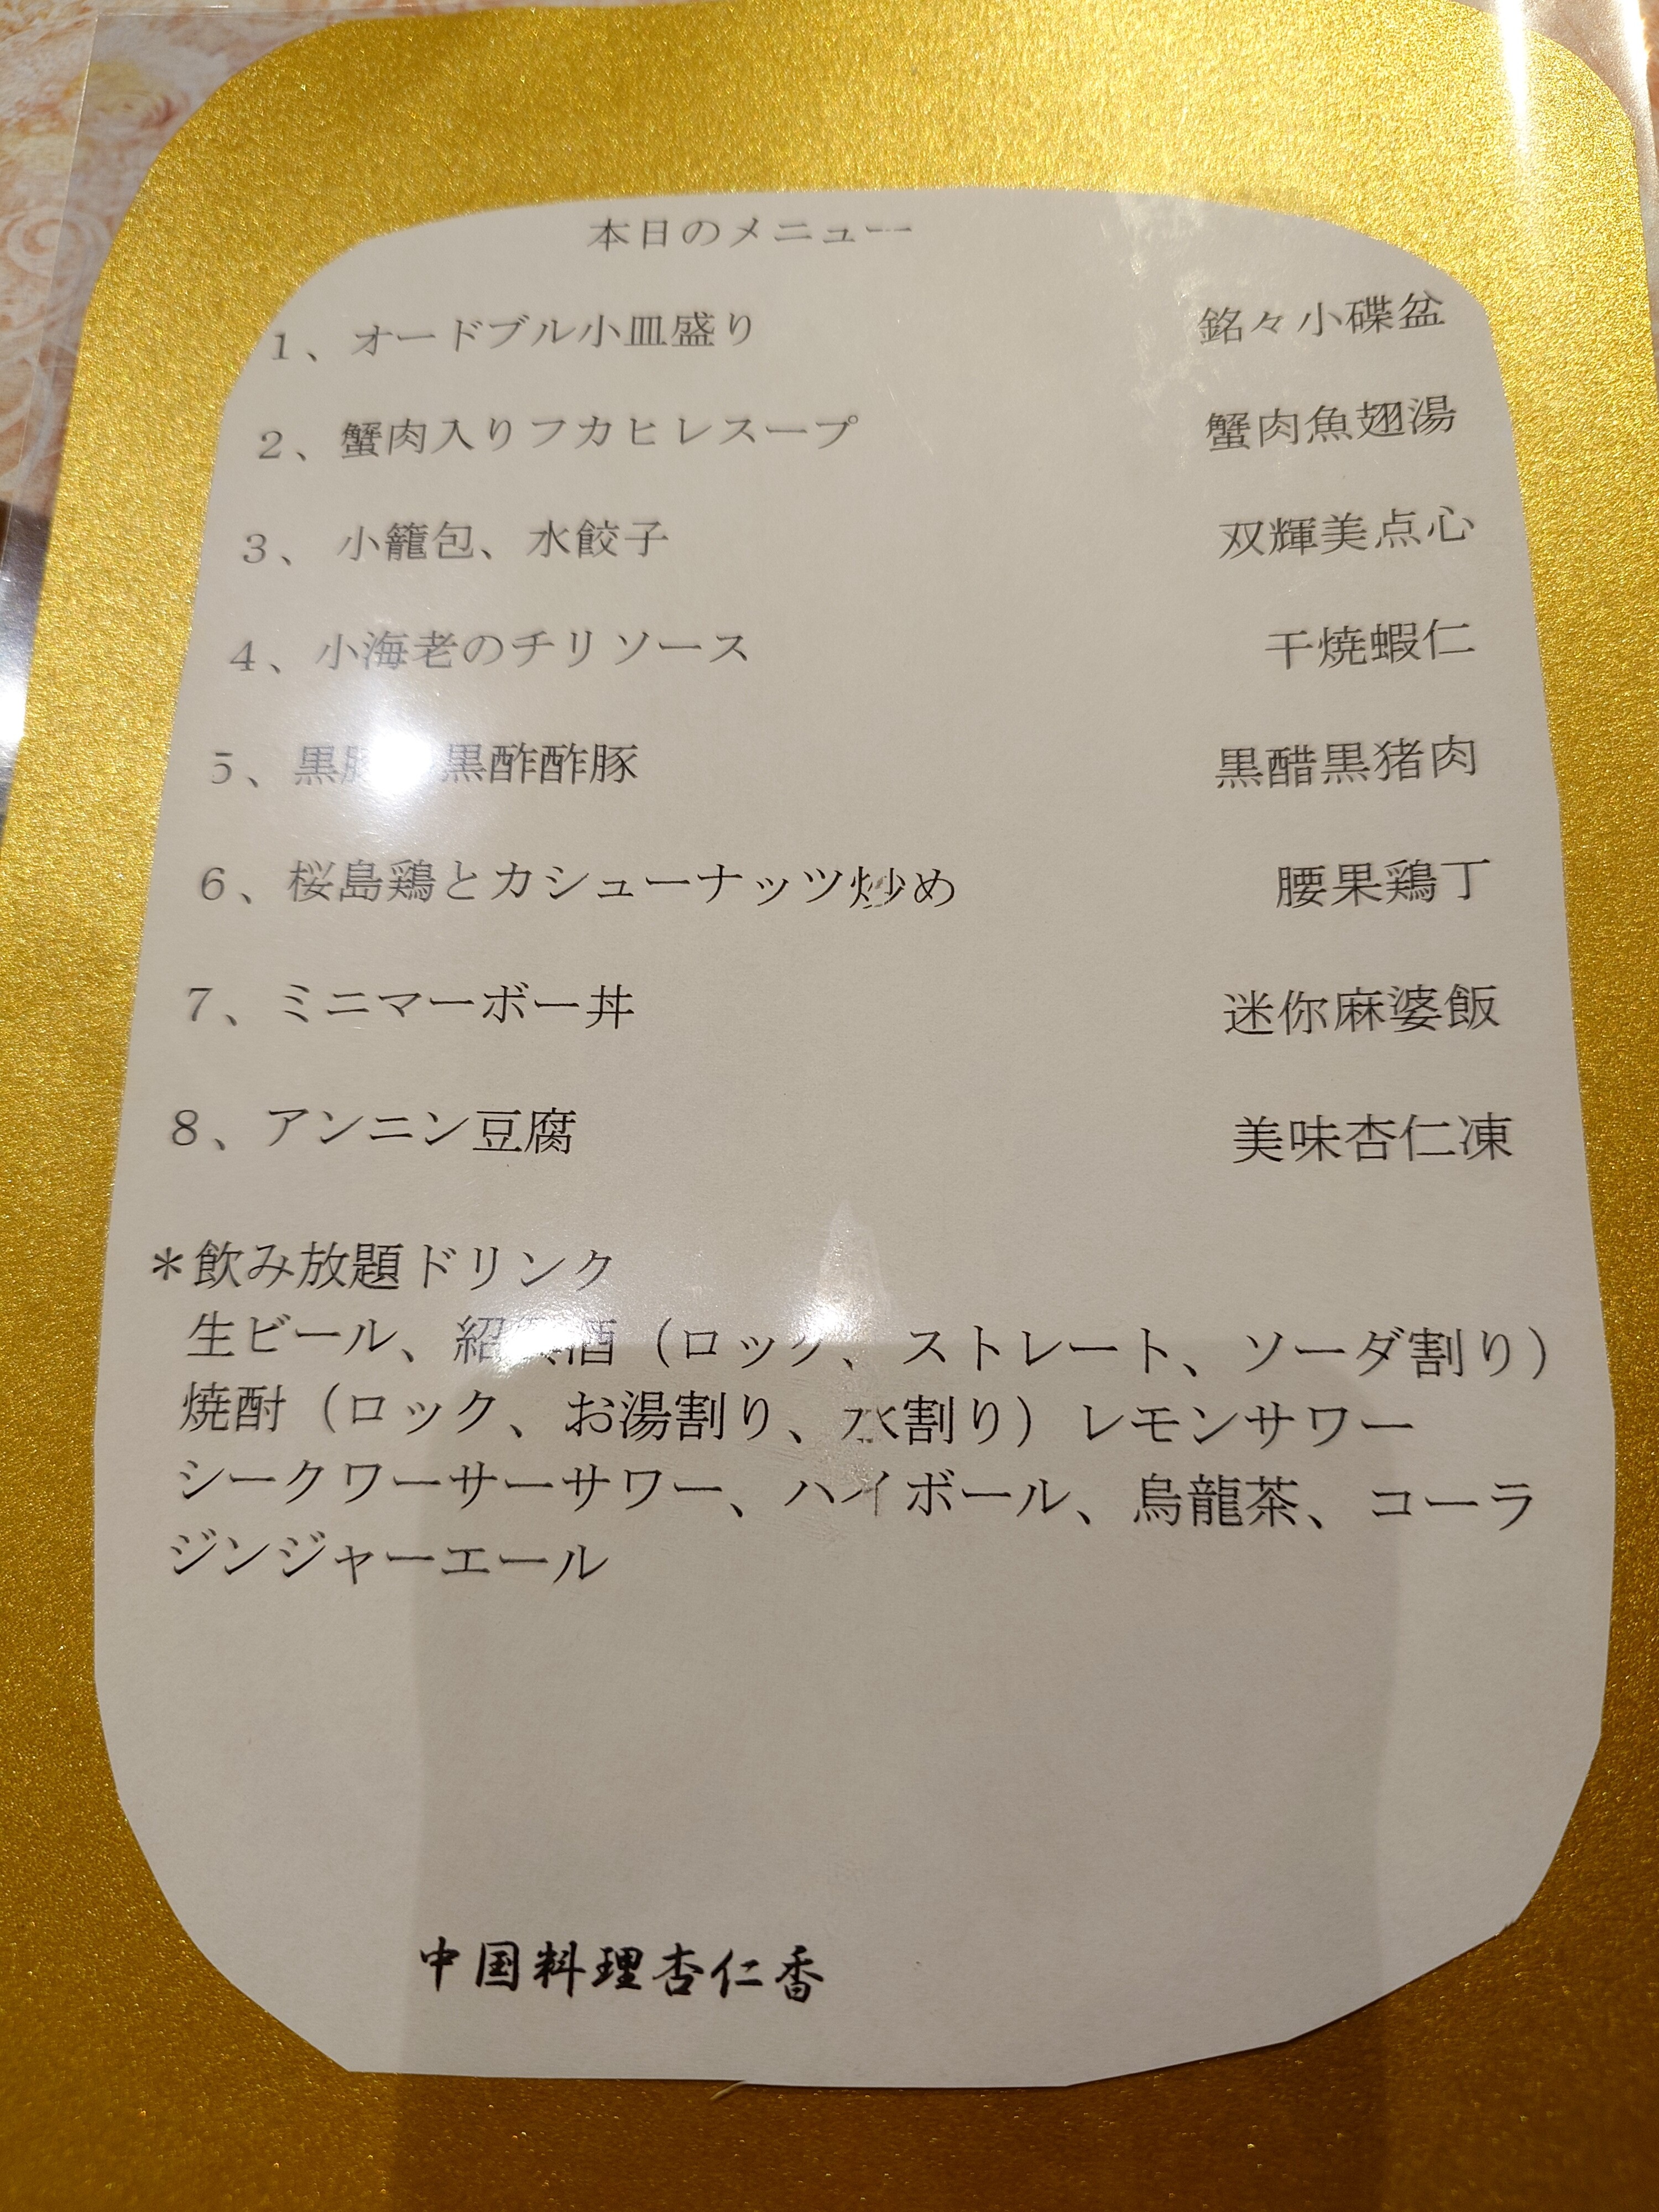 本日のメニュー
1、オードブル小皿盛り 銘々小碟盆
2、蟹肉入りフカヒレスープ 蟹肉魚翅湯
3、小籠包、水餃子 双輝美点心
4、小海老のチリソース 干焼蝦仁
5、黒 黒酢酢豚 黒醋黒猪肉
6、桜島鶏とカシューナッツ炒め 腰果鶏丁
7、ミニマーボー丼 迷你麻婆飯
8、アンニン豆腐 美味杏仁凍
＊飲み放題ドリンク
生ビール、紹興酒（ロック、ストレート、ソーダ割り）
焼酎（ロック、お湯割り、水割り）レモンサワー
シークワーサーサワー、ハイボール、烏龍茶、コーラ
ジンジャーエール
中国料理杏仁香